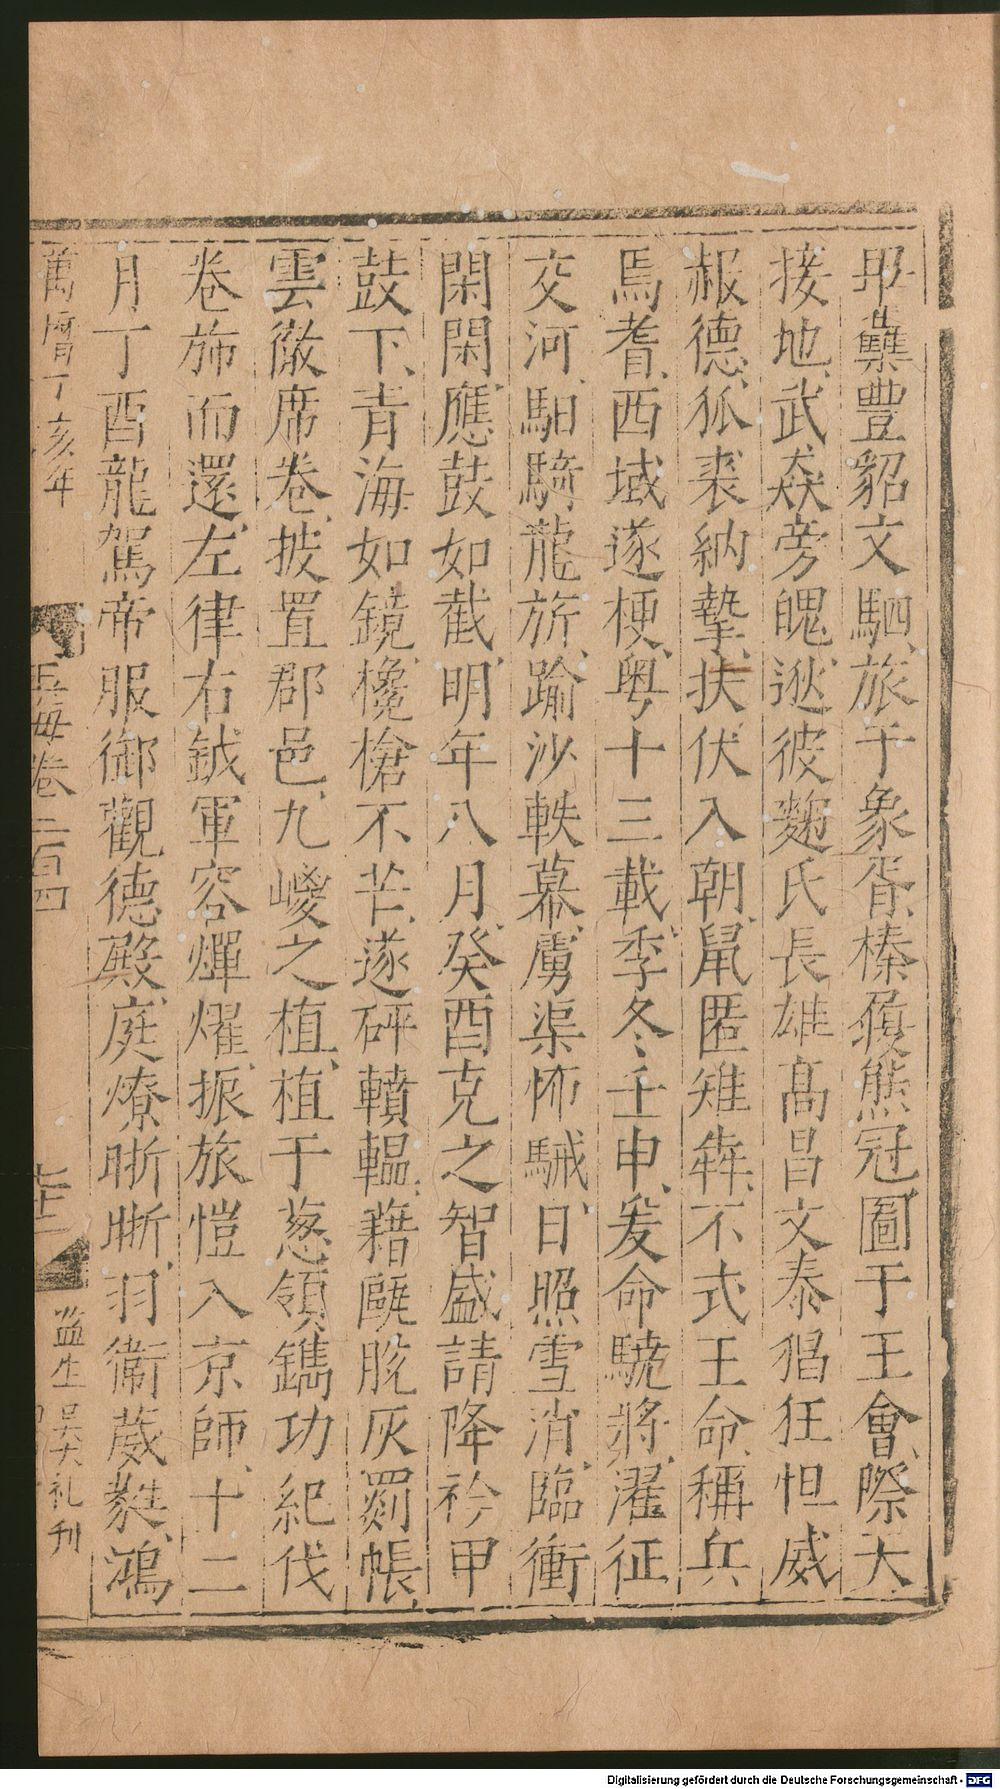 毘䕫豐貂文駟旅于象胥榛𡣪熊冠圖于王會際天
接地武猋旁魄逖彼麴氏長雄髙昌文泰猖狂怛威
赧德狐裘納摯扶伏入朝鼠匿雉犇不式王命稱兵
焉耆西域遂梗粤十三載季冬壬申爰命驍將濯征
交河馹騎龍旂踰沙軼幕虜渠怖駴日照雪消臨衝
閑閑應鼓如截明年八月癸酉克之智盛請降衿甲
鼓下青海如鏡欃槍不芒遂砰轒輼藉甌脫灰罽帳
雲徹席卷披置郡邑九嵕之植植于葱領鐫功紀伐
卷斾而還左律右鉞軍容燀燿振旅愷入京師十二
月丁酉龍駕帝服御觀德殿庭燎晰晰羽衞葳蕤鴻
萬曆丁亥年
玉海卷二百四
七十二
監生吳大礼刊
Digitalisierung gefördert durch die Deutsche Forschungsgemeinschaft - DFG